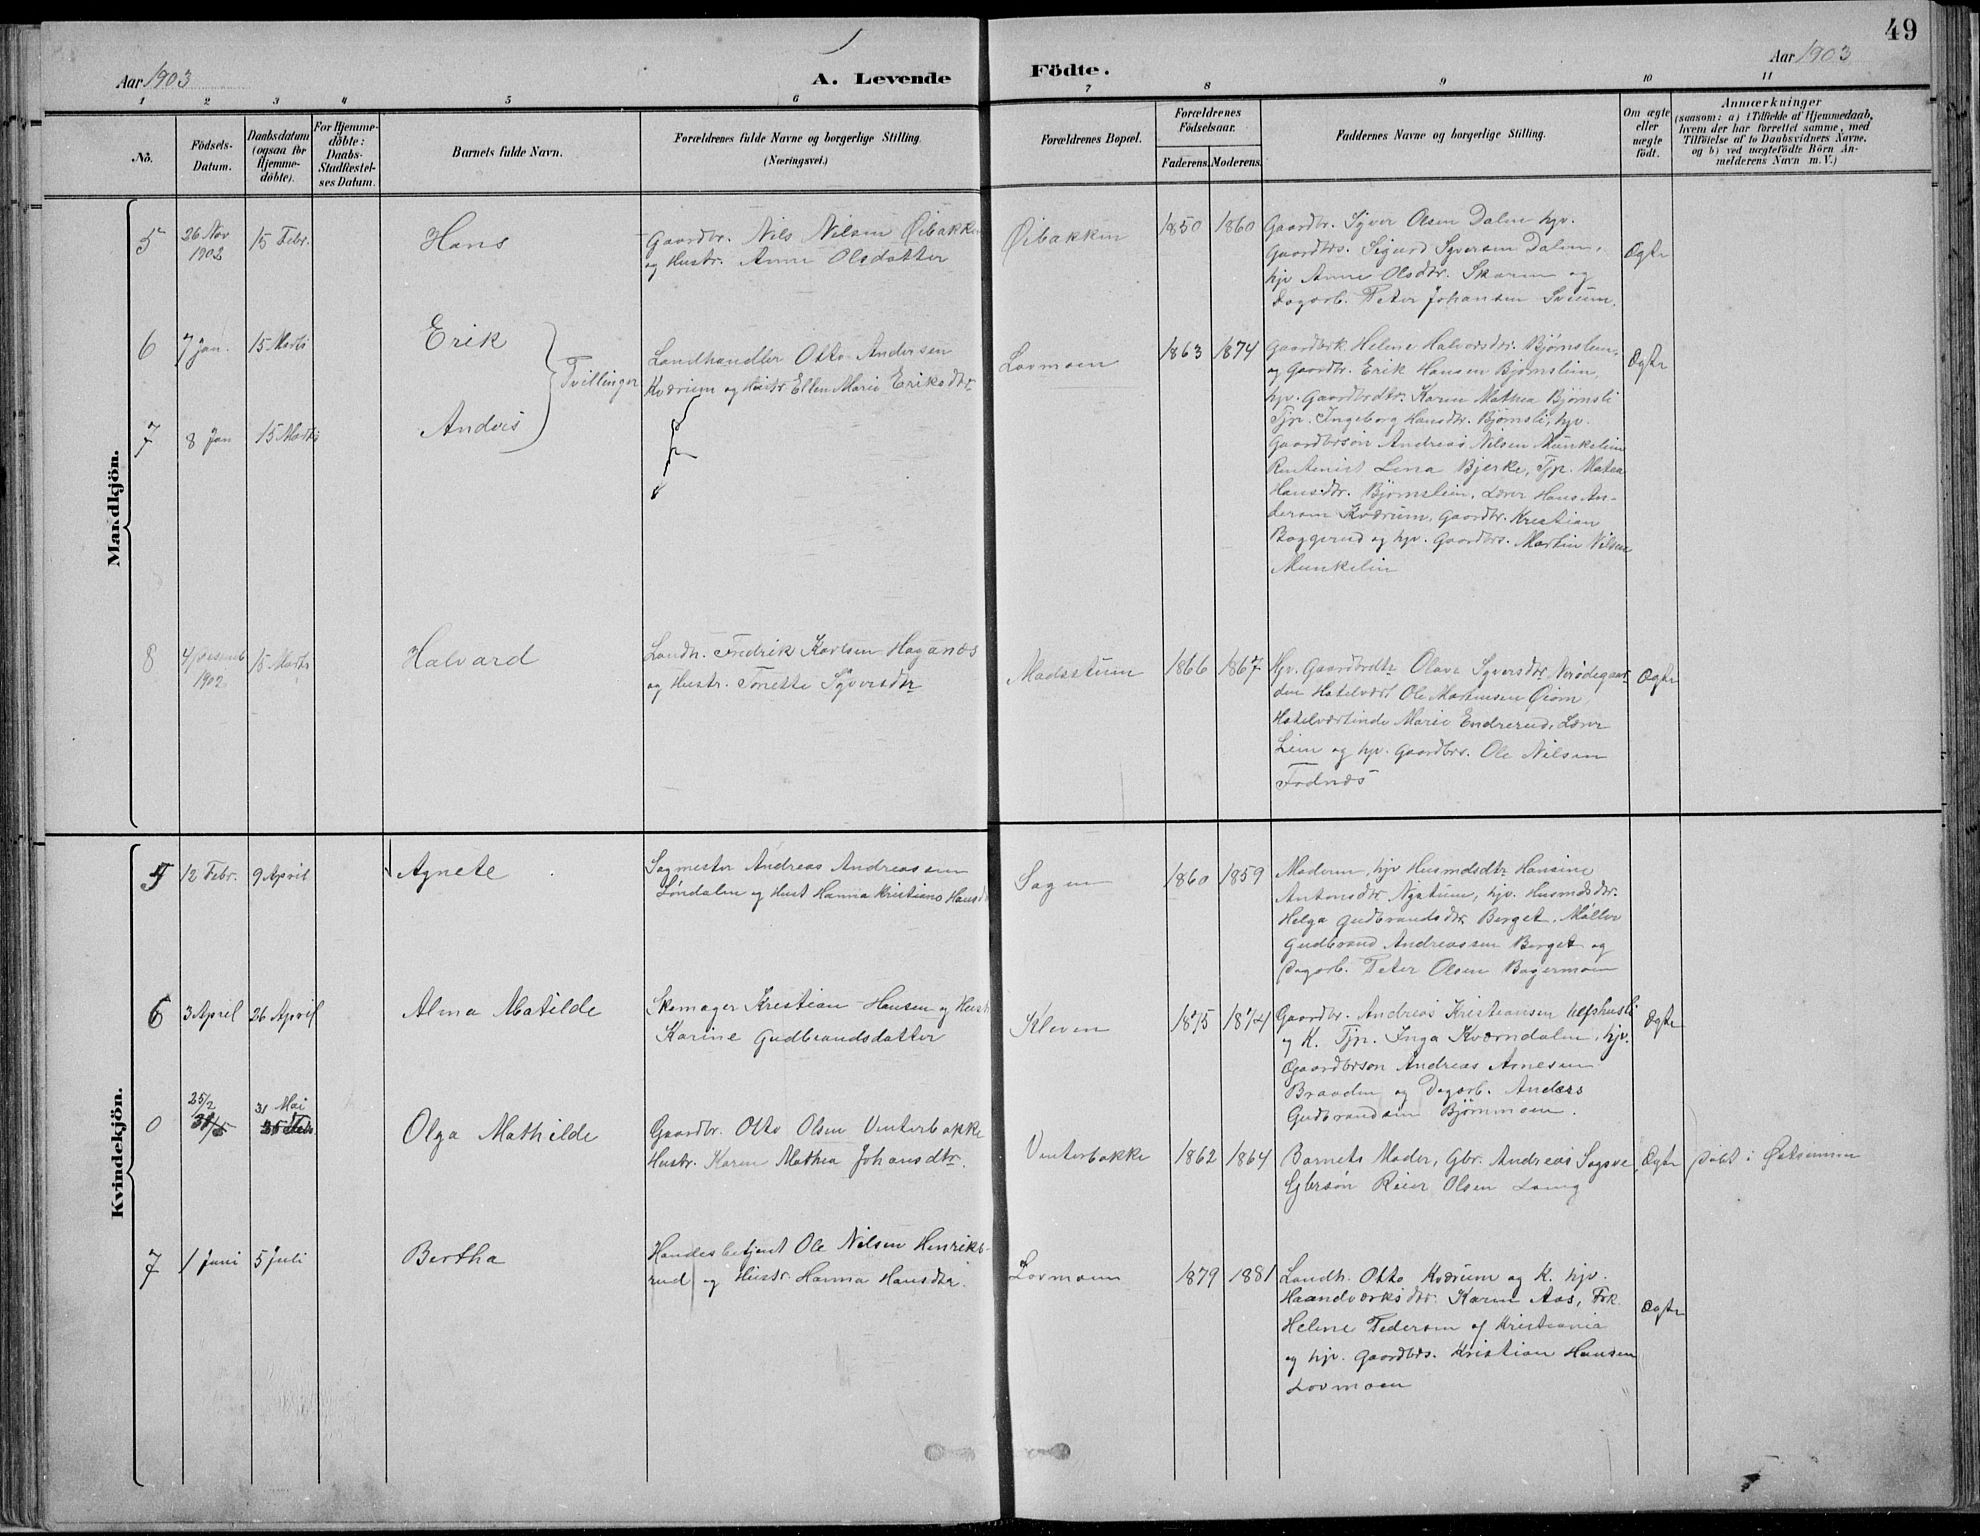 49
Aar 1903
A. Levende Födte.
Aar 1903
1 2 3 4 5 6 7 8 9 10 11
No.
Födsels-Datum.
Daabsdatum (ogsaa for Hjemme-döbte).
For Hjemme-döbte: Daabs-Stadfæstel-ses Datum.
Barnets fulde Navn.
Forældrenes fulde Navne og borgerlige Stilling.
(Næringsvei.)
Forældrenes Bopæl.
Forældrenes Födselsaar.
Faderens. Moderens.
Faddernes Navne og borgerlige Stilling.
Om ægte eller uægte födt.
Anmærkninger
(saasom: a) i Tilfælde af Hjemmedaab,
hvem der har forrettet samme, med
Tilföielse af to Daabsvidners Navne,
og b) ved uægtefödte Börn An-
melderens Navn m. V.)
Mandkjön.
5 26 Nov 1902 15 Febr. Hans
Gaardbr. Nils Nilsen Øibakken
og Hustr. Anne Olsdatter
Øibakken 1850 1860
Gaardbr. Syver Olsen Dalen hjv.
Gaardbrs. Sigurd Syversen Dalen,
hjv Anne Olsdtr. Skaren og
Dagarb. Peter Johansen Sveum.
Ægte
6 7 Jan. 15 Marts Erik
Tvillinger
Landhandler Otto Andersen
Kværum og Hustr Ellen Marie Eriksdtr
Lovmoen 1863 1874
Gaardbrk. Helene Halvorsdtr. Bjørnslein,
og Gaardbr. Erik Hansen Bjørnslein,
hjv. Gaardbrdtr. Karen Mathea Bjørnsli
Tjp. Ingeborg Hansdtr. Bjørnsli, hjv.
Gaardbrsøn Andreas Nilsen Munkelien
Rentenist Lina Bjerke, Tjp. Matea
Hansdtr. Bjørnslein, Lærer Hans An-
dersen Kværum, Gaardbr. Kristian
Baggerud og hjv. Gaardbrs. Martin Nilsen
Munkelin
Ægte
7 8 Jan 15 Marts Anders
8 4 Desemb 1902 15 Marts Halvard
Landh. Fredrik Karlsen Haganæs
og Hustr. Tonette Syversdtr
Madsstuen 1866 1867
Hjv. Gaardbrdtr Olave Syversdtr Nerødegaar-
den Hotelvært Ole Martinsen Øiom,
Hotelværtinde Marie Endrerud, Lærer
Lien og hjv. Gaardbrs. Ole Nilsen
Fodnæs
Ægte
Kvindekjön.
5 12 Febr. 9 April Agnete
Sagmester Andreas Andreassen
Løndalen og Hust Hanna Kristiane Hansd
Sagen 1860 1859
Moderen, hjv Husmdsdtr Hansine
Antonsdtr Nystuen, hjv. Husmdsdtr.
Helga Gudbrandsdtr Berget, Møller
Gudbrand Andreassen Berget og
Dagarb. Peter Olsen Bagermoen
6 3 April 26 April Alma Matilde
Skomager Kristian Hansen og Hustr
Karine Gudbrandsdatter
Kleven 1875 1874
Gaardbr. Andreas Kristiansen Ulfshusli
og K. Tjp. Inga Kværndalen, hjv.
Gaardbrsøn Andreas Arnesen
Braaden og Dagarb. Anders
Gudbrandsen Bjørnmoen.
Ægte
0 25/2 31 Mai Olga Mathilde
Gaardbr. Otto Olsen Vinterbakke
Hustr. Karen Mathea Johansdtr.
Vinterbakke 1862 1864
Barnets Moder, Gbr. Andreas Sogsve
Gbrsøn Reier Olsen
Ægte
Døbt i Østsinnen
7 1 Juni 5 Juli Bertha
Handesbetjent Ole Nilsen Henriks-
rud og Hustr. Hanna Hansdtr.
Lovmoen 1879 1881
Landh. Otto Kværum og K. hjv.
Haandværksdtr. Karen Aas, Frk.
Helene Pedersen af Kristiania
og hjv. Gaardbrs. Kristian Hansen
Lovmoen
Ægte